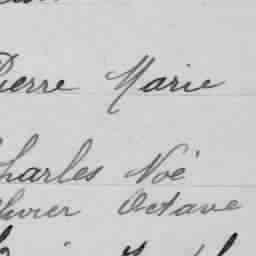 Pierre Marie
Charles Noë
Olivier Octave